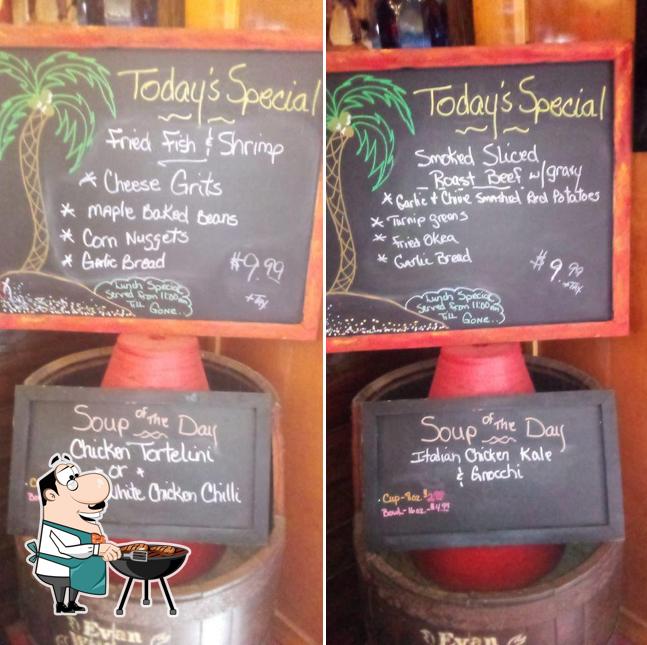 Today's Special
Fried Fish & Shrimp
* Cheese Grits
* Maple Baked Beans
* Corn Nuggets
* Garlic Bread
$9.99
*Tax
Lunch Special
Served From 11:00am
Till Gone...
Soup of the Day
Chicken Tortelini
or *
White Chicken Chilli
Evan
Today's Special
Smoked Sliced
Roast Beef w/gravy
* Garlic & Chive Smashed Red Potatoes
* Turnip greens
* Fried Okra
* Garlic Bread
$9.99
*Tax
Lunch Special
Served From 11:00am
Till Gone...
Soup of the Day
Italian Chicken Kale
& Gnocchi
Cup-8oz.
Bowl-16oz-$4.99
Evan